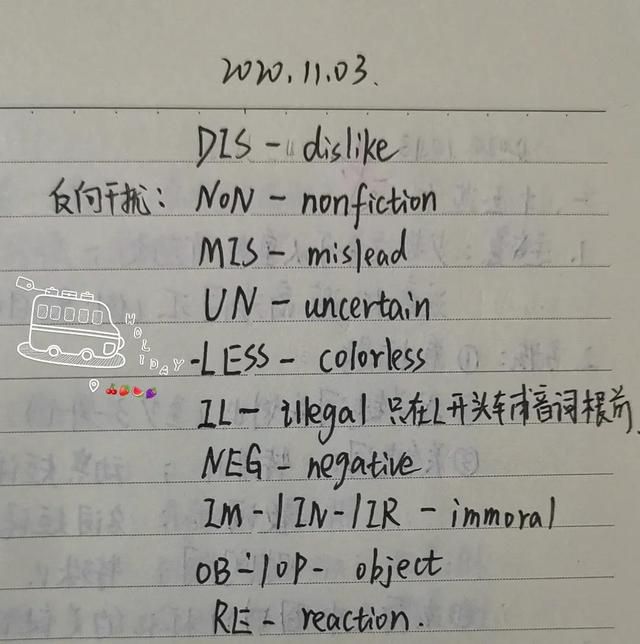 2020.11.03.
DIS - dislike
反向干扰: NON - nonfiction
MIS - mislead
UN - uncertain
HOLIDAY
-LESS - colorless
IL - illegal 只在L开头车甫音词根前
NEG - negative
IM-/IN-/IR - immoral
OB-/OP- object
RE - reaction.